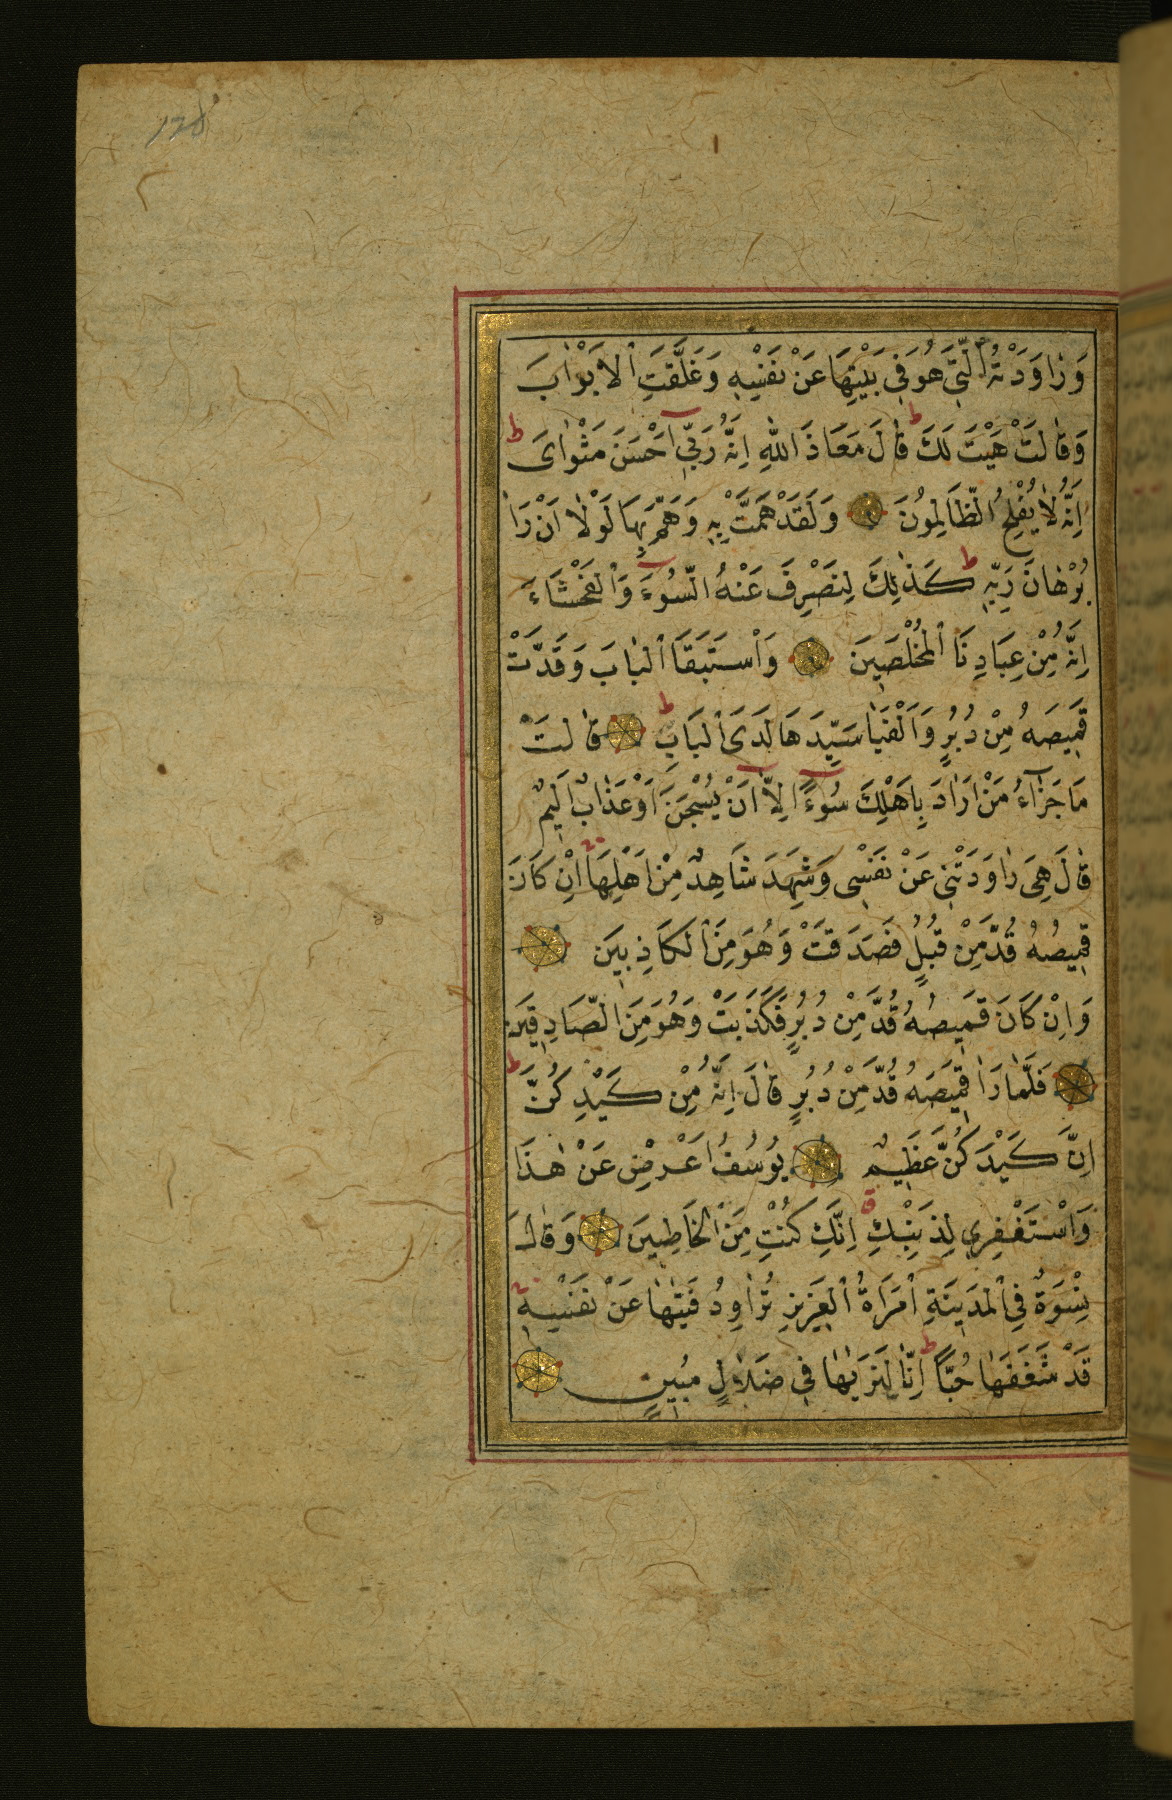 178
وَرٰاوَدَتْهُ ٱلَّتِي هُوَ فِي بَيْتِهٰا عَنْ نَفْسِهِ وَغَلَّقَتِ ٱلْاَبْوٰابَ
وَقٰالَتْ هَيْتَ لَكَ ط قٰالَ مَعَاذَ اللّٰهِ اِنَّهُ رَبِّيٓ اَحْسَنَ مَثْوٰاىَ ط
اِنَّهُ لٰا يُفْلِحُ الظَّالِمُونَ وَلَقَدْ هَمَّتْ بِهِ وَهَمَّ بِهَا لَوْلٰا اَنْ رَاٰ
بُرْهٰانَ رَبِّهِ ط كَذٰلِكَ لِنَصْرِفَ عَنْهُ السُّوٓءَ وَٱلْفَحْشَاءَ
اِنَّهُ مِنْ عِبَادِنَا ٱلْمُخْلَصِينَ وَٱسْتَبَقَا ٱلْبٰابَ وَقَدَّتْ
قَمِيصَهُ مِنْ دُبُرٍ وَاَلْفَيٰا سَيِّدَهَا لَدَى ٱلْبَابِ ط قٰالَتْ
مَا جَزٰٓاءُ مَنْ اَرٰادَ بِاَهْلِكَ سُوٓءًا اِلّٰٓا اَنْ يُسْجَنَ اَوْ عَذٰابٌ اَلِيمٌ
قٰلَ هِىَ رٰاوَدَتْنِى عَنْ نَفْسِى وَشَهِدَ شٰاهِدٌ مِنْ اَهْلِهَا اِنْ كَانَ
قَمِيصُهُ قُدَّ مِنْ قُبُلٍ فَصَدَقَتْ وَهُوَ مِنَ ٱلْكَاذِبِينَ
وَاِنْ كَانَ قَمِيصُهُ قُدَّ مِنْ دُبُرٍ فَكَذَبَتْ وَهُوَ مِنَ الصَّادِقِينَ
فَلَمّٰا رَاٰ قَمِيصَهُ قُدَّ مِنْ دُبُرٍ قٰالَ اِنَّهُ مِنْ كَيْدِ كُنَّ ط
اِنَّ كَيْدَ كُنَّ عَظِيمٌ يُوسُفُ اَعْرِضْ عَنْ هٰذَا
وَاسْتَغْفِرِي لِذَنْبِكِ ق اِنَّكِ كُنْتِ مِنَ ٱلْخَاطِئِينَ وَقٰالَ
نِسْوَةٌ فِي ٱلْمَدِينَةِ ٱمْرَاَةُ ٱلْعَزِيزِ تُرٰاوِدُ فَتٰيهٰا عَنْ نَفْسِهِ
قَدْ شَغَفَهٰا حُبًّا ط اِنّٰا لَنَرٰيهٰا فِي ضَلٰالٍ مُبِينٍ